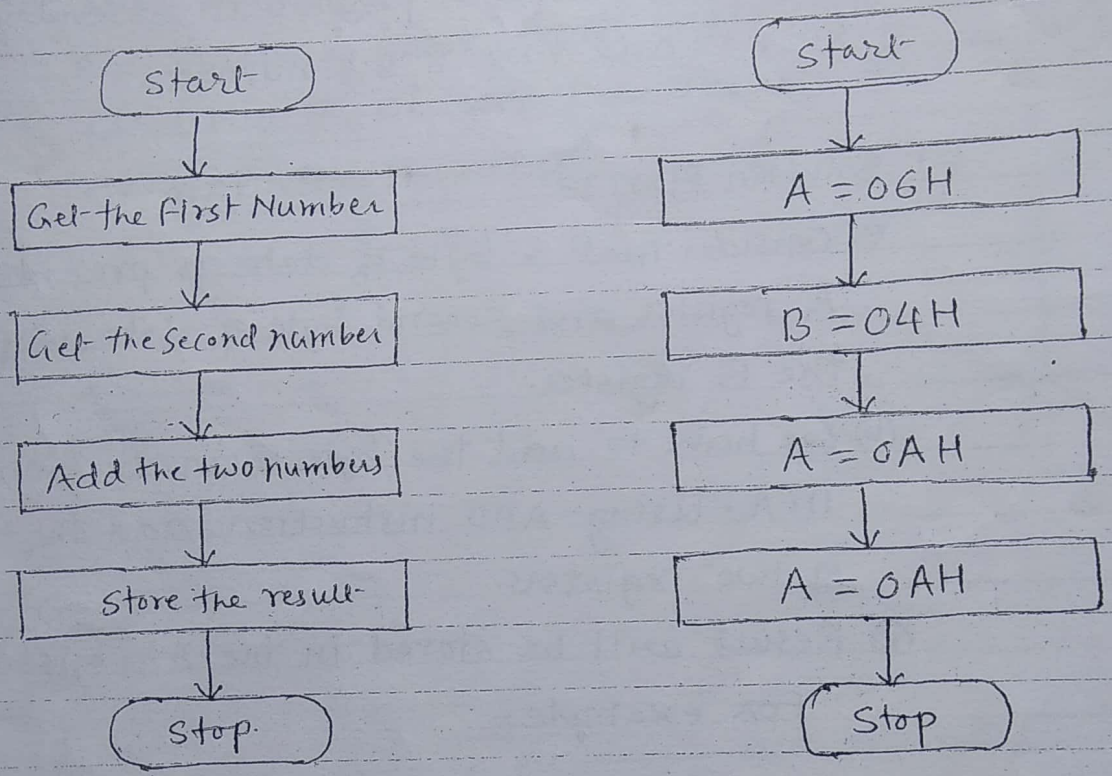 Start
Get the First Number
Get the Second number
Add the two numbers
Store the result
Stop.
Start
A = 06H
B = 04H
A = 0AH
A = 0AH
Stop